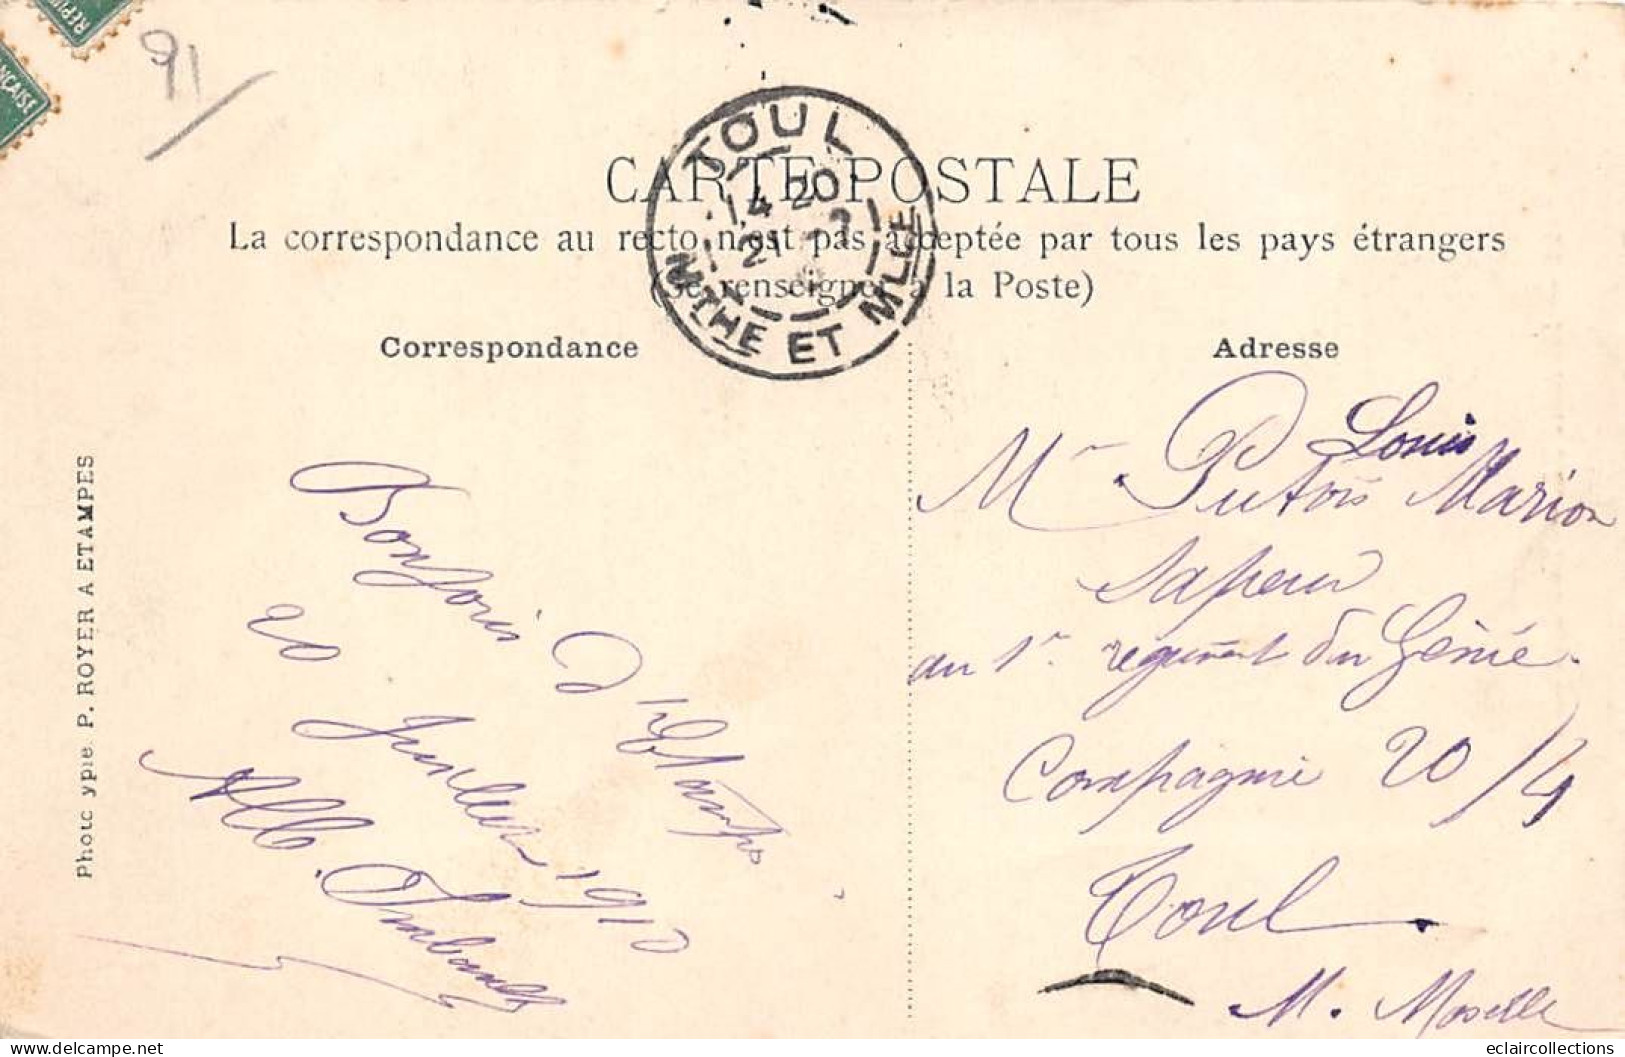 RÉPU
NÇAISE
91
TOUL
14 20
21 - 7
MTHE ET MLLE
CARTE POSTALE
La correspondance au recto n'est pas acceptée par tous les pays étrangers
(Se renseigner à la Poste)
Correspondance
Bonjour d'Etampes
20 Juillet 1910
Alb. Imbault
Adresse
Louis
Mr Putois Marion
Sapeur
au 1r regiment du Génie.
Compagnie 20/4
Toul.
M. Moselle
Photc ypie P. ROYER A ETAMPES
eclaircollections